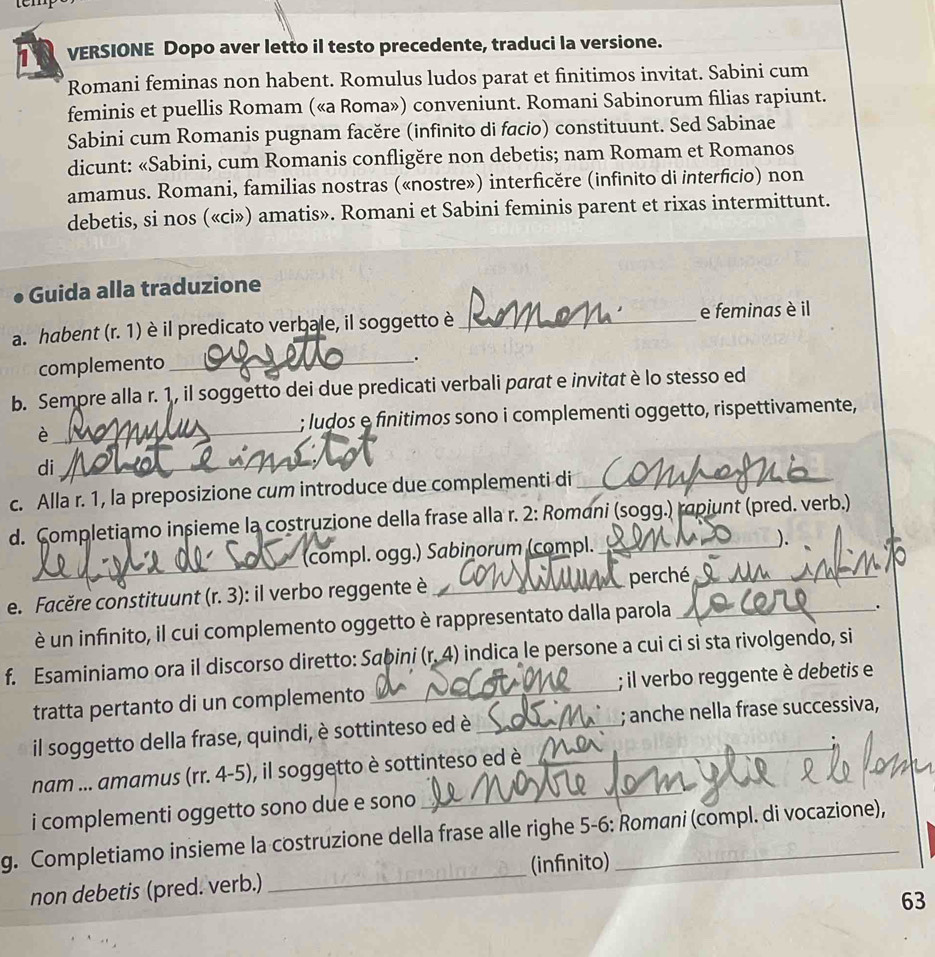 1 VERSIONE Dopo aver letto il testo precedente, traduci la versione.
Romani feminas non habent. Romulus ludos parat et finitimos invitat. Sabini cum
feminis et puellis Romam («a Roma») conveniunt. Romani Sabinorum filias rapiunt.
Sabini cum Romanis pugnam facĕre (infinito di facio) constituunt. Sed Sabinae
dicunt: «Sabini, cum Romanis confligĕre non debetis; nam Romam et Romanos
amamus. Romani, familias nostras («nostre») interficĕre (infinito di interficio) non
debetis, si nos («ci») amatis». Romani et Sabini feminis parent et rixas intermittunt.
• Guida alla traduzione
a. habent (r. 1) è il predicato verbale, il soggetto è Romani e feminas è il
complemento oggetto.
b. Sempre alla r. 1, il soggetto dei due predicati verbali parat e invitat è lo stesso ed
è Romulus; ludos e finitimos sono i complementi oggetto, rispettivamente,
di parat e invitat
c. Alla r. 1, la preposizione cum introduce due complementi di compagnia
d. Completiamo insieme la costruzione della frase alla r. 2: Romani (sogg.) rapiunt (pred. verb.)
le figlie dei (compl. ogg.) Sabinorum (compl. ).
e. Facĕre constituunt (r. 3): il verbo reggente è constituunt perché è un infinito
è un infinito, il cui complemento oggetto è rappresentato dalla parola facere.
f. Esaminiamo ora il discorso diretto: Sabini (r. 4) indica le persone a cui ci si sta rivolgendo, si
tratta pertanto di un complemento di ; il verbo reggente è debetis e
il soggetto della frase, quindi, è sottinteso ed è Sabini; anche nella frase successiva,
nam ... amamus (rr. 4-5), il soggetto è sottinteso ed è noi;
i complementi oggetto sono due e sono le nostre famiglie e le
g. Completiamo insieme la costruzione della frase alle righe 5-6: Romani (compl. di vocazione),
non debetis (pred. verb.) (infinito)
63